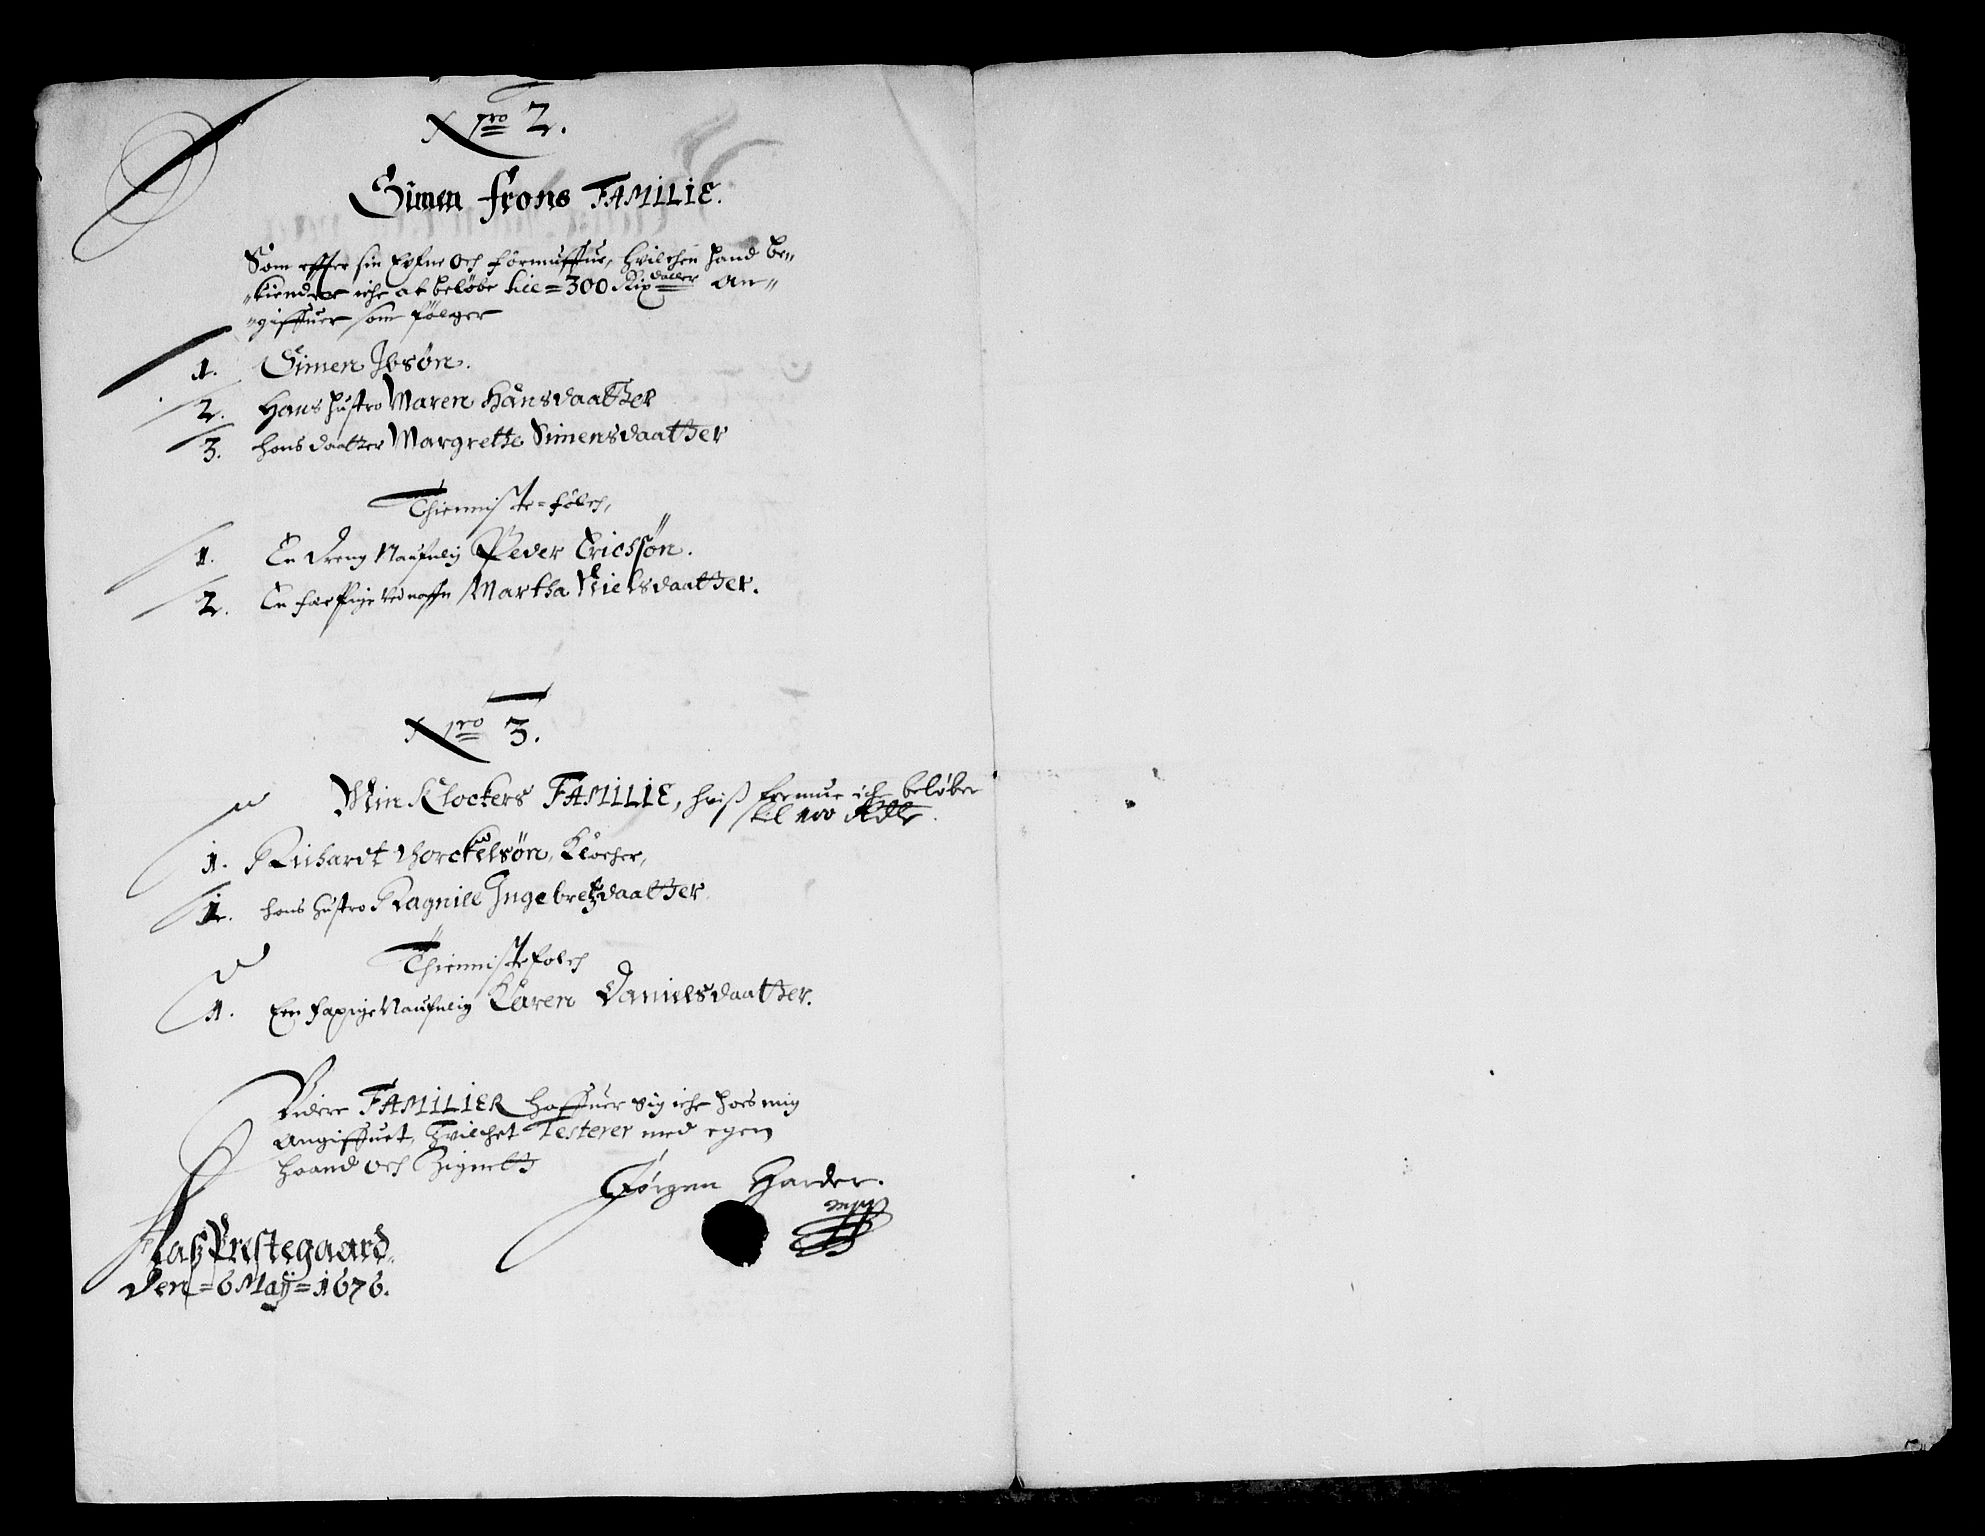 Nro 2.
Simen frons FAMILIE.
Som effter sin Æfne och formuffue, hvilchen hand be-
kiender iche at beløbe till = 300 Rixdaller an-
giffuer som følger
1. Simen Ibsøn.
2. Hans hustro Maren Hansdaatter
3. hans daatter Margrette Simensdaatter
Thienniste-folch,
1. En dreng Naufnlig Peder Ericksøn.
2. En Pige ved naffn Martha Nielsdaatter.
Nro 3.
Min Klockers FAMILIE, hviss formue iche beløber
till 100 Rdlr.
1. Richardt Thorckelsøn, Klocher,
2. hans hustro Ragnill Ingebretzdaatter
Thienniste folch
1. Een Pige Naufnlig Karen Danielsdaatter.
Videre FAMILIER haffuer sig iche hoes mig
Angiffuet, hvilchet Testerer med egen
haand och Zignett
Jørgen Harder.
mpp
Prestegaard
den = 6 Maÿ = 1676.